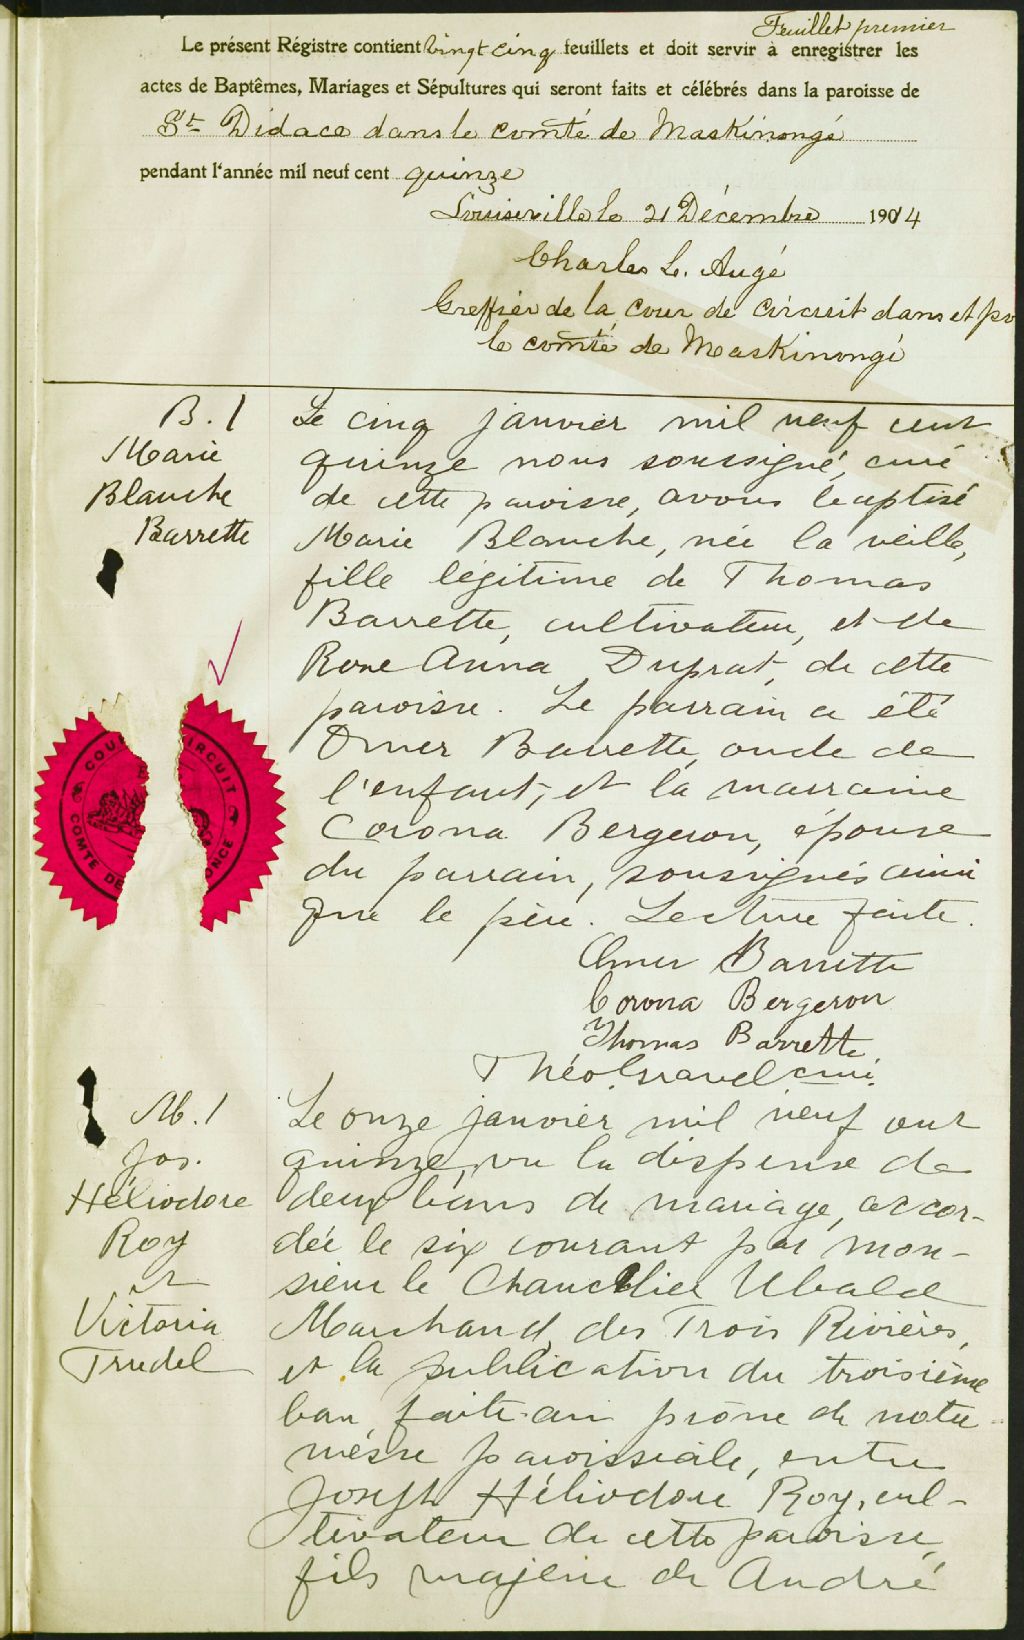 Feuillet premier
Le présent Régistre contient vingt cinq feuillets et doit servir à enregistrer les
actes de Baptêmes, Mariages et Sépultures qui seront faits et célébrés dans la paroisse de
St Didace dans le comté de Maskinongé
pendant l'année mil neuf cent quinze
Louiseville le 21 Décembre 1914
Charles L. Augé
Greffier de la cour de circuit dans et po
le comté de Maskinongé
B. 1
Marie
Blanche
Barrette
Le cinq janvier mil neuf cent
quinze nous soussigné, curé
de cette paroisse, avons baptisé
Marie Blanche, née la veille,
fille légitime de Thomas
Barrette, cultivateur, et de
Rose Anna Duprat, de cette
paroisse. Le parrain a été
Omer Barrette, oncle de
l'enfant, et la marraine
Corona Bergeron, épouse
du parrain, soussignés ainsi
que le père. Lecture faite.
Omer Barrette
Corona Bergeron
Thomas Barrette
Théo. Gravel curé.
COUR CIRCUIT
COMTÉ DE
M. 1
Jos.
Héliodore
Roy
et
Victoria
Trudel
Le onze janvier mil neuf cent
quinze, vu la dispense de
deux bans de mariage, accor-
dée le six courant par mon-
sieur le Chancelier Ubald
Marchand, des Trois Rivières,
et la publication du troisième
ban faite au prône de notre
messe paroissiale, entre
Joseph Héliodore Roy, cul-
tivateur de cette paroisse,
fils majeur de André